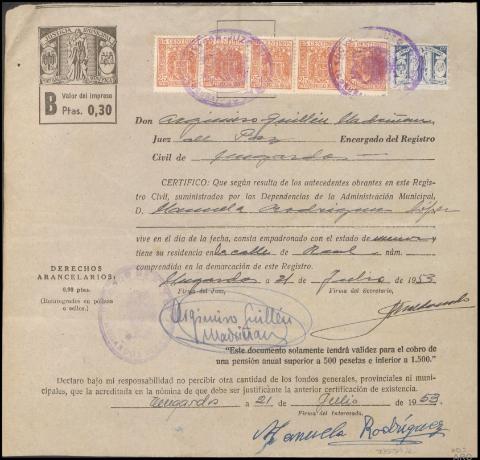 JUSTICIA MUNICIPAL
B Valor del impreso
Ptas. 0,30
25 CENTIMOS
Don Argimiro Guillén Madriñan
Juez de Paz Encargado del Registro
Civil de Mugardos
CERTIFICO: Que según resulta de los antecedentes obrantes en este Regis-
tro Civil, suministrados por las Dependencias de la Administración Municipal,
D. Manuela Rodriguez López
vive en el día de la fecha, consta empadronado con el estado de y
tiene su residencia en la calle de Real núm.
comprendida en la demarcación de este Registro.
DERECHOS
ARANCELARIOS:
0,90 ptas.
(Reintegrados en pólizas
o sellos.)
Mugardos a 21 de Julio de 1953
Firma del Juez, Firma del Secretario,
Argimiro Guillén
Madriñan
"Este documento solamente tendrá validez para el cobro de
una pensión anual superior a 500 pesetas e inferior a 1.500."
Declaro bajo mi responsabilidad no percibir otra cantidad de los fondos generales, provinciales ni muni-
cipales, que la acreditada en la nómina de que debe ser justificante la anterior certificación de existencia.
Mugardos a 21 de Julio de 1953
Firma del Interesado,
Manuela Rodríguez